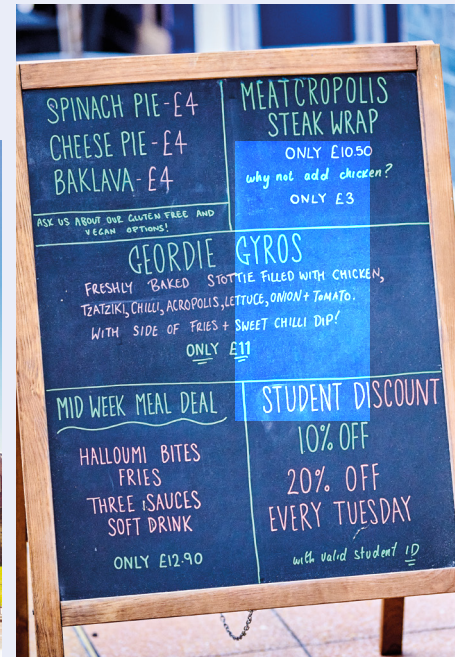 SPINACH PIE - £4
CHEESE PIE - £4
BAKLAVA - £4
ASK US ABOUT OUR GLUTEN FREE AND
VEGAN OPTIONS!
MEATCROPOLIS
STEAK WRAP
ONLY £10.50
why not add chicken?
ONLY £3
GEORDIE GYROS
FRESHLY BAKED STOTTIE FILLED WITH CHICKEN,
TZATZIKI, CHILLI, ACROPOLIS, LETTUCE, ONION + TOMATO.
WITH SIDE OF FRIES + SWEET CHILLI DIP!
ONLY £11
MID WEEK MEAL DEAL
HALLOUMI BITES
FRIES
THREE SAUCES
SOFT DRINK
ONLY £12.90
STUDENT DISCOUNT
10% OFF
20% OFF
EVERY TUESDAY
with valid student ID